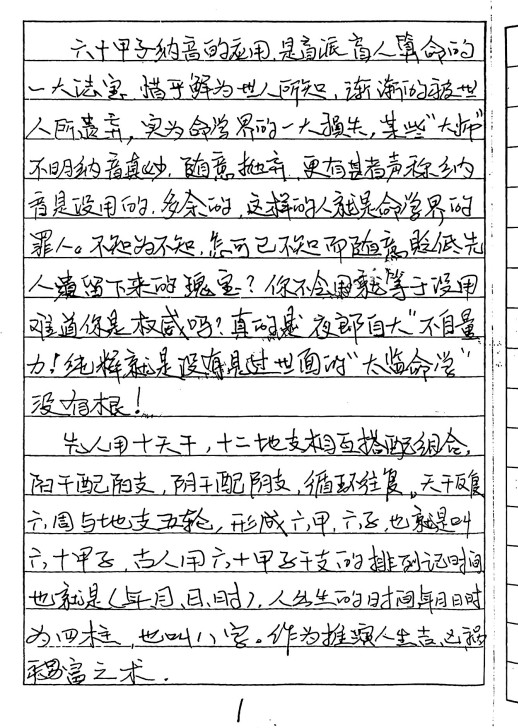 六十甲子纳音的应用,是盲派盲人算命的
一大法宝,惜乎鲜为世人所知,渐渐的被世
人所遗弃,实为命学界的一大损失,某些"大师"
不明纳音真妙,随意抛弃,更有甚者声称纳
音是没用的,多余的,这样的人就是命学界的
罪人。不知为不知,怎可已不知而随意贬低先
人遗留下来的瑰宝?你不会用就等于没用
难道你是权威吗?真的是"夜郎自大"不自量
力!纯粹就是没有见过世面的"太监命学"
没有根!
先人用十天干,十二地支相互搭配组合,
阳干配阳支,阴干配阴支,循环往复。天干反复
六周与地支五轮,形成六甲,六子,也就是叫
六十甲子,古人用六十甲子干支的排列记时间
也就是(年、月、日、时),人出生的时间年月日时
为四柱,也叫八字。作为推演人生吉凶祸
富之术.
1